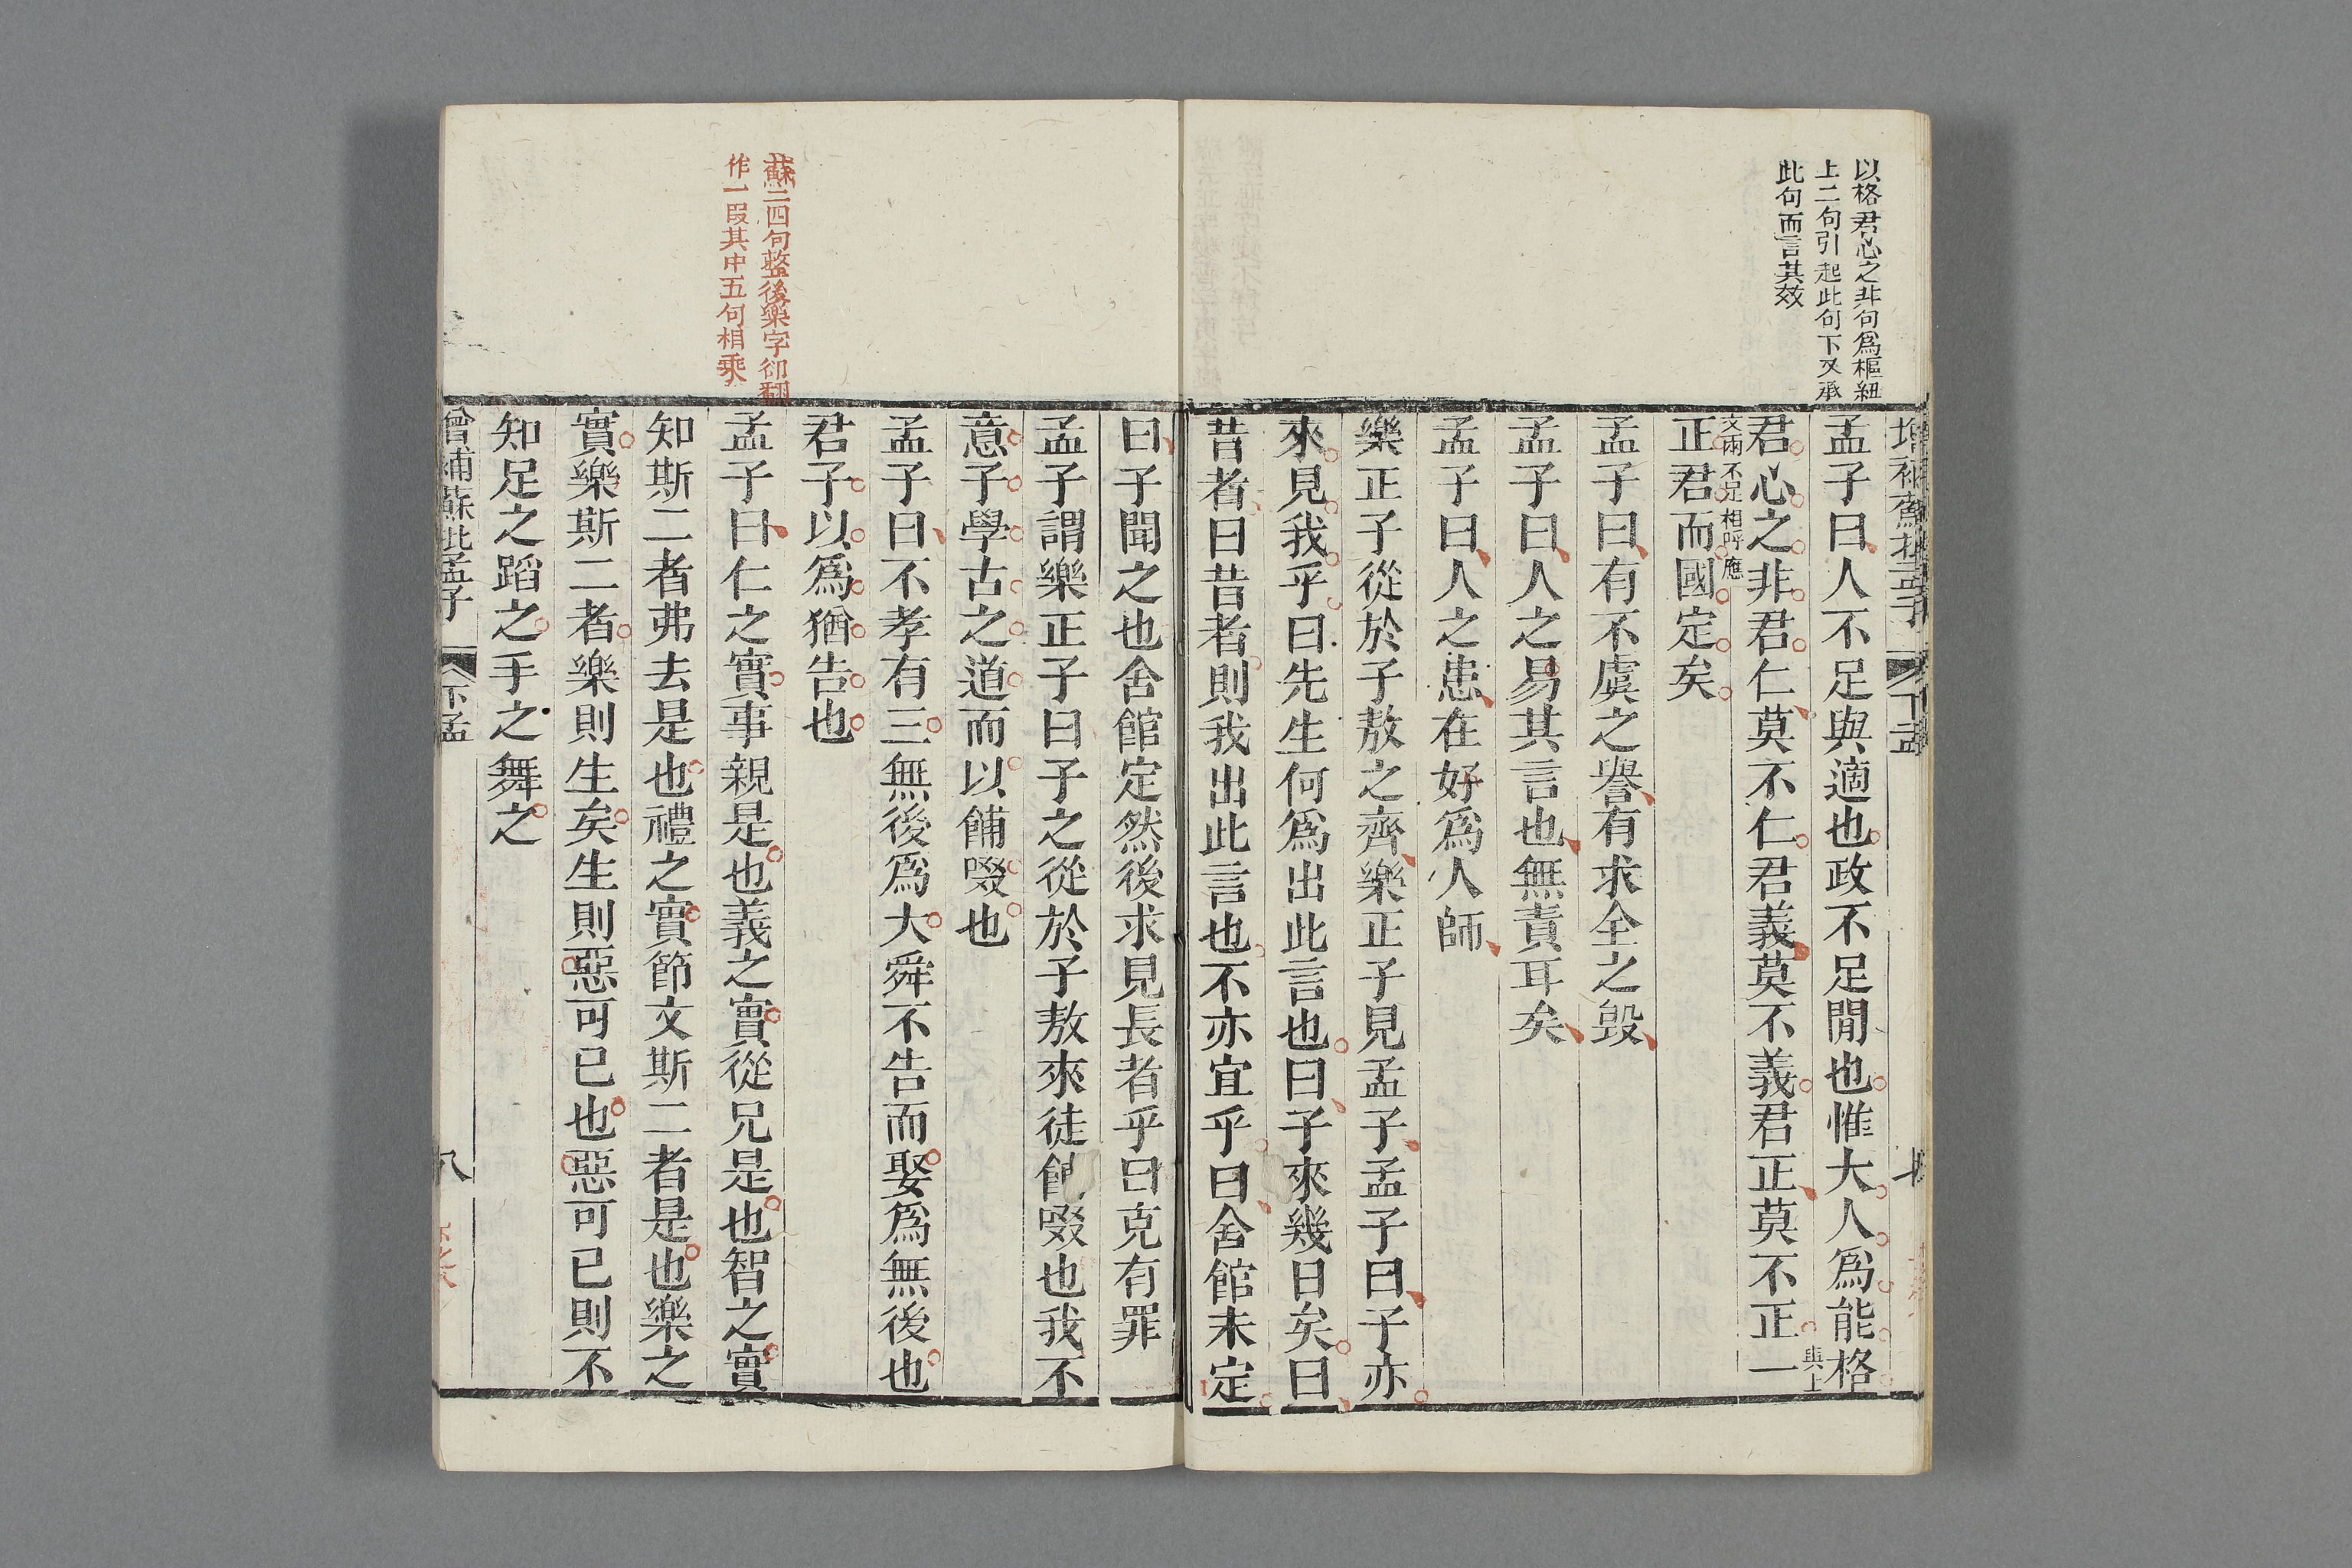 以格君心之非句爲樞紐
上二句引起此句下又承
此句而言其效
孟子曰人不足與適也政不足閒也惟大人爲能格
君心之非君仁莫不仁君義莫不義君正莫不正一
與上
文兩不足相呼應
正君而國定矣
孟子曰有不虞之譽有求全之毀
孟子曰人之易其言也無責耳矣
孟子曰人之患在好爲人師
樂正子從於子敖之齊樂正子見孟子孟子曰子亦
來見我乎曰先生何爲出此言也曰子來幾日矣曰
昔者曰昔者則我出此言也不亦宜乎曰舍館未定
曰子聞之也舍館定然後求見長者乎曰克有罪
孟子謂樂正子曰子之從於子敖來徒餔啜也我不
意子學古之道而以餔啜也
孟子曰不孝有三無後爲大舜不告而娶爲無後也
君子以爲猶告也
蘇云四句整後樂字卻翻
作一段其中五句相乘
孟子曰仁之實事親是也義之實從兄是也智之實
知斯二者弗去是也禮之實節文斯二者是也樂之
實樂斯二者樂則生矣生則惡可已也惡可已則不
知足之蹈之手之舞之
增補蘇批孟子 下孟 八